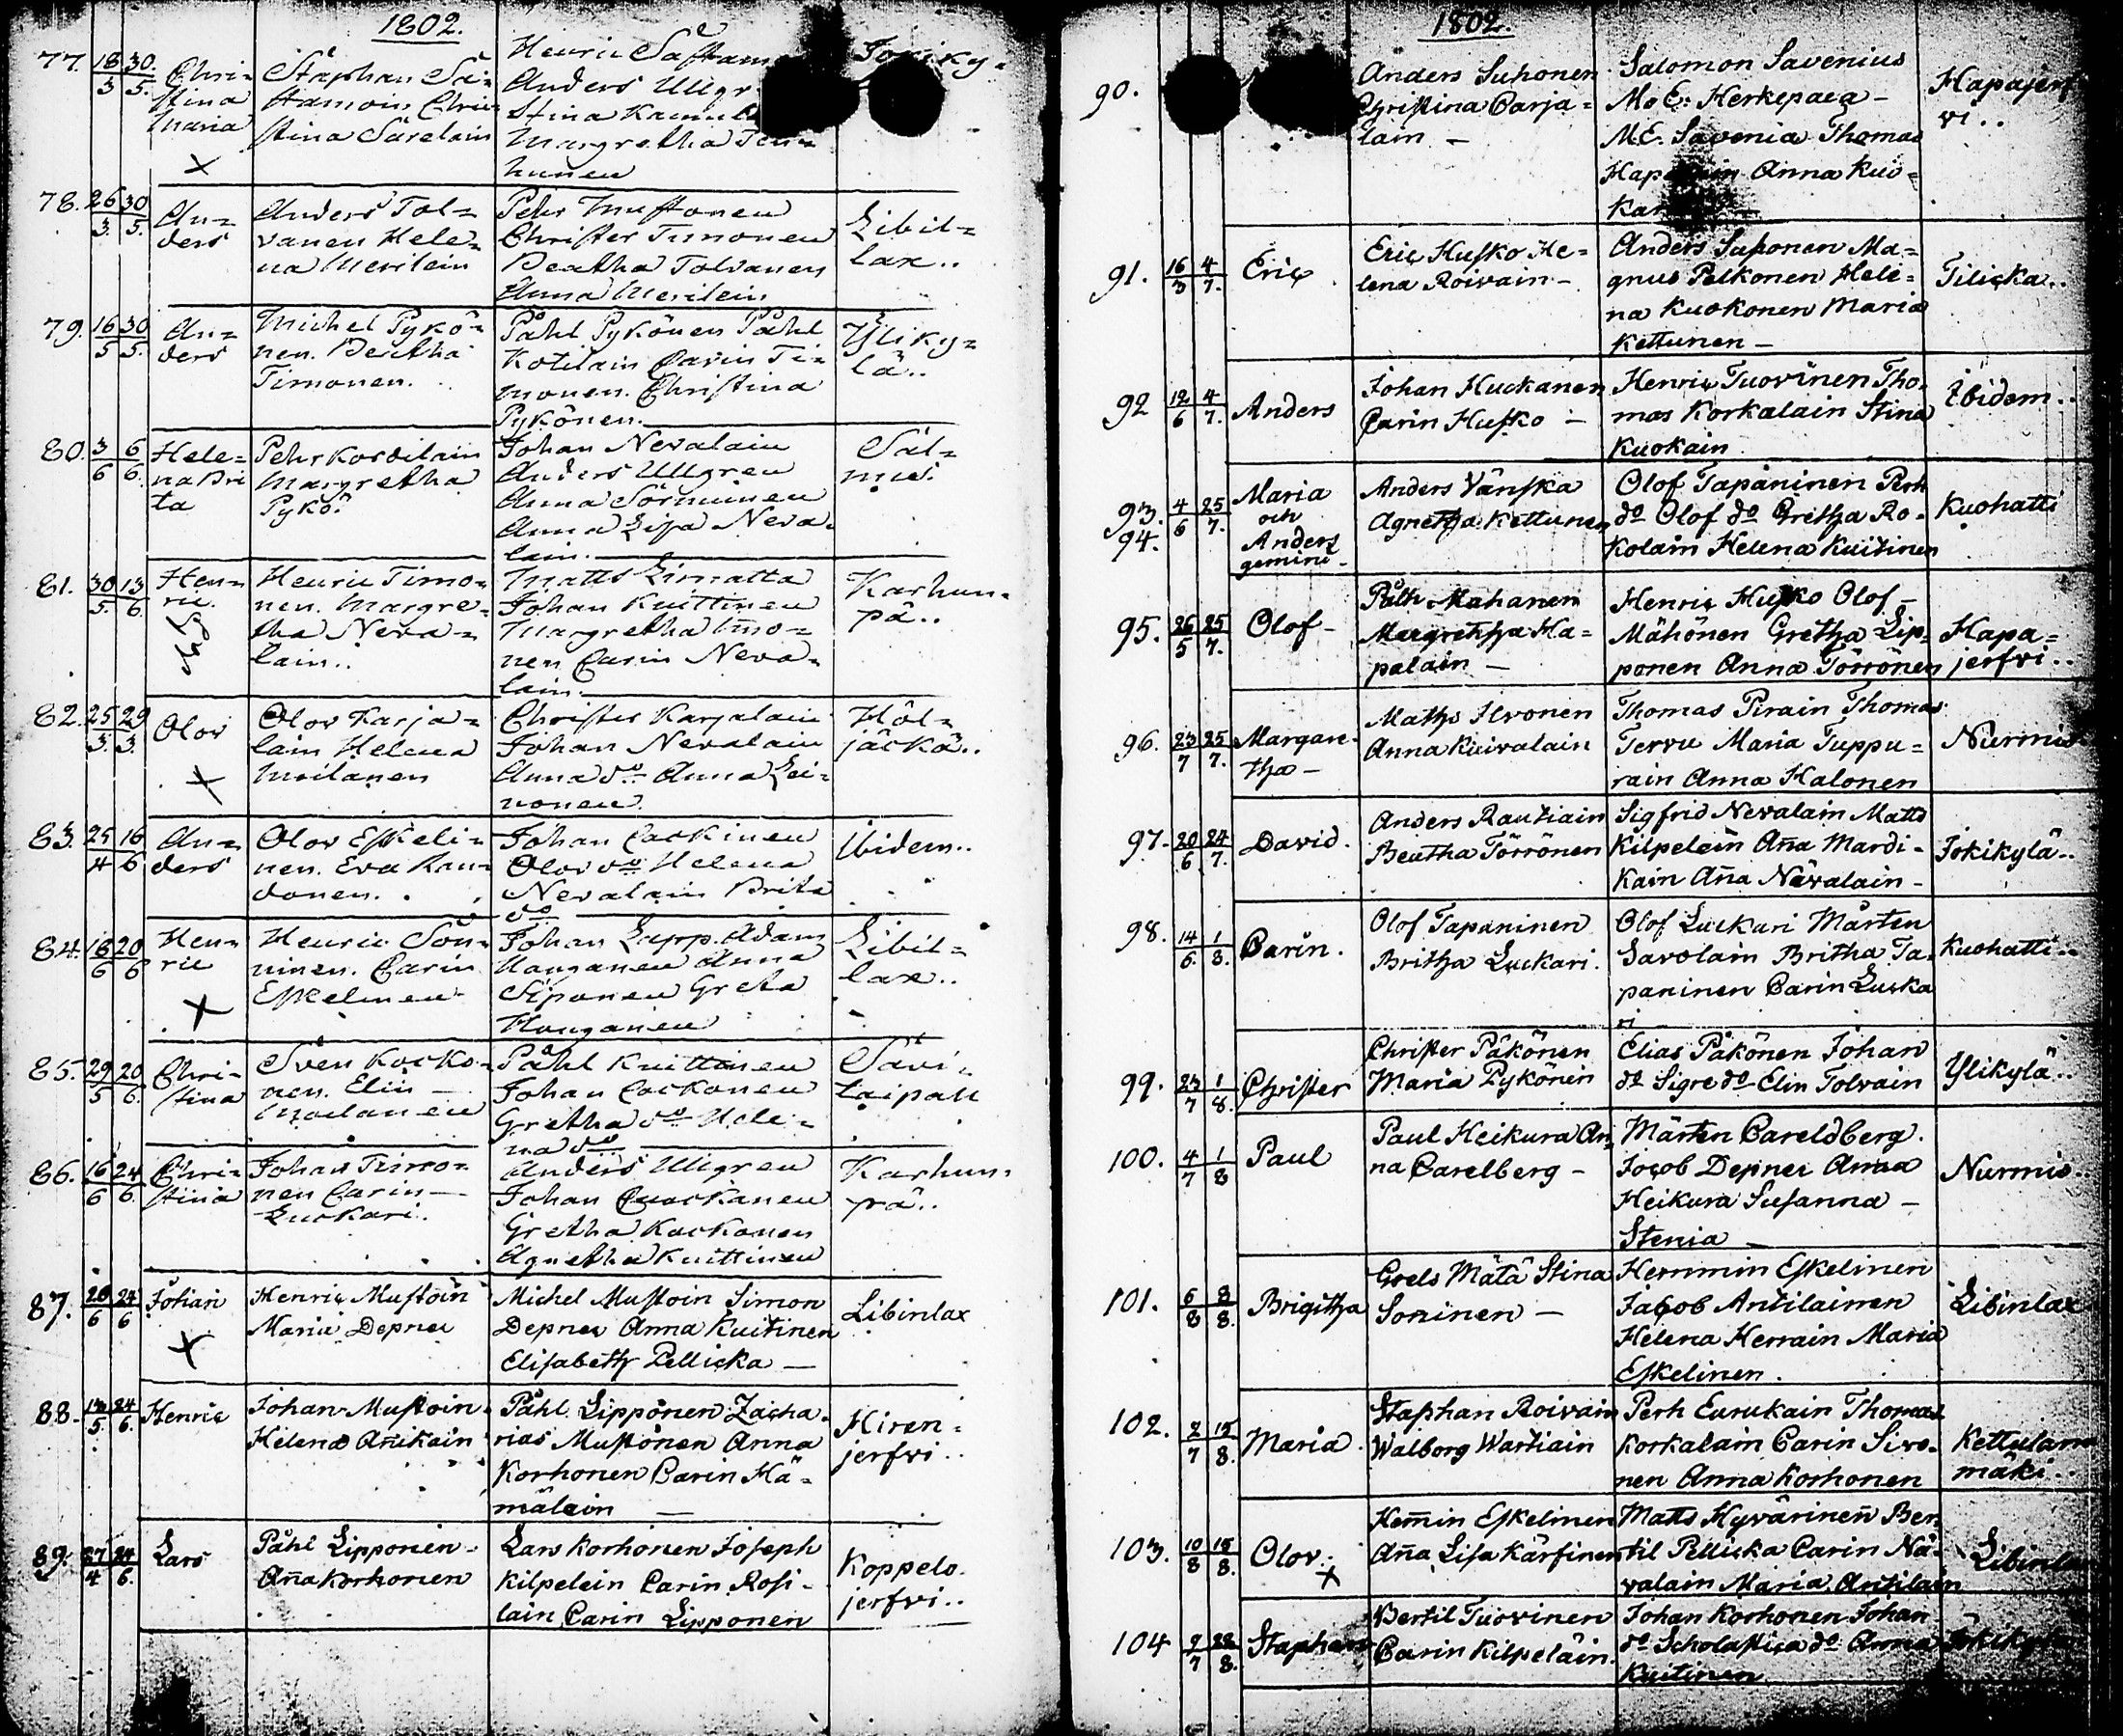 1802.
77. 18/3 30./5. Christina Maria
Stina Sarelain
Anders Ullgr
Margretha
hunen
78. 26/3. 30/5. Anders
Anders Tolvanen Helena Merilein
Christer Timonen
Beatha Tolvanen
Anna Merilein
Libillax..
79. 16/5 30/5. Anders
Michel Pykönen. Beatha
Timonen.
Påhl Pykönen Påhl
Kotilain Carin Timonen. Christina
Pykönen.
Ylikylä..
80. 3/6 6/6. Helena Brita
Margretha
Pykö:
Johan Nevalain
Anders Ullgren
Anna Sormuinen
Anna Lisa Nevalain.
81. 30/5. 13/6. Henric
Henric Timonen. Margretha Nevalain..
Matts Limatta
Johan Kuittinen
Margretha Timonen Carin Nevalain.
Karhunpä..
82. 25/3. 29/3. Olov
Olov Karjalain Helena
Moilanen
Christer Karjalain
Johan Nevalain
Anna do Anna Leinonen.
Höljäckä..
83. 25/4 16/6 Anders
Olov Eskelinen. Eva
Olov do Helena
Nevalain Brita
do
Ibidem..
84. 16/6 20/6 Henric
Henric Sorninen. Carin
Eskelinen
Johan Lapp. Adam
Hanganen Anna
Siponen Greta
Hanganen
Libillax..
85. 29/5 20/6. Christina
Sven Kockonen. Elin
Moilanen
Påhl Kuittinen
Johan Cockonen
Gretha do Helena do
Savitaipall
86. 16/6 24/6. Christina
Johan Timonen Carin
Luckari.
Anders Ullgren
Johan
Gretha Kockonen
Agnetha Kuittinen
Karhunpä..
87. 20/6 24/6 Johan
Henric Mustoin
Maria Depner
Michel Mustoin Simon
Depner Anna Kuitinen
Elisabeth Pellicka —
Libinlax
88. 13/5. 24/6. Henric
Johan Mustoin
Helena
Påhl Lipponen Zacharias Mustonen Anna
Korhonen Carin Hämälain —
Hirenjerfvi..
89. 27/4 24/6. Lars
Påhl Lipponen
Anna Korhonen
Lars Korhonen Joseph
Kilpelein Carin Rosilain Carin Lipponen
Koppelojerfvi..
1802.
90.
Anders Suhonen
Christina Carjalain —
Salomon Savenius
Mo E: Herkepaea —
M:E. Savenia Thomas
Anna Kuo=
Hapajerfvi..
91. 16/3 4/7. Eric
Eric Husko Helena Roivain —
Anders Suhonen Magnus Pelkonen Helena Kuokonen Maria
Kettunen —
Tilicka..
92 12/6 4/7. Anders
Johan Huckanen
Carin Husko —
Henric Tuovinen Thomas Korkalain Stina
Kuokain
Ibidem..
93. 94. 4/6 25/7. Maria
och
Anders
gemini —
Anders Vänska
Agnetha Kettunen
Olof Tapaninen Perh
do Olof do Gretha Rokolain Helena Kuitinen
Kuohatti
95. 26/5 25/7. Olof —
Påth Mahanen
Margretha Hapalain —
Henric Husko Olof —
Mähönen Gretha Lipponen Anna Törrönen
Hapajerfvi..
96. 23/7 25/7. Margaretha —
Maths Ilvonen
Anna Kuivalain
Thomas Pirain Thomas
Tervu Maria Tuppurain Anna Halonen
Nurmis
97. 20/6 24/7. David.
Anders Rautiain
Beatha Törrönen
Sigfrid Nevalain Matts
Kilpelein Aña Mardikain Aña Nävalain —
Jokikylä..
98. 14/6. 1/8. Carin.
Olof Tapaninen
Britha Luckari.
Olof Luckari Mårten
Savolain Britha Tapaninen Carin Luckari
Kuohatti..
99. 23/7 1/8. Christer
Christer Päkönen
Maria Pykönen
Elias Päkönen Johan
do Sigre do Elin Tolvain
Ylikylä..
100. 4/7 1/8 Paul
Paul Heikura Anna Carelberg —
Mårten Careldberg.
Jocob Depner Anna
Heikura Susanna —
Stenia —
Nurmis..
101. 6/8 8/8. Brigitha
Grels Mätä Stina
Soninen —
Hemmin Eskelinen
Jacob Antilainen
Helena Herrain Maria
Eskelinen.
Libinlax
102. 2/7 15/8. Maria.
Staphan Roivain
Walborg Wartiain
Perh Eurukain Thomas
Korkalain Carin Sivonen Anna Korhonen
Kettulanmäki..
103. 10/8 15/8. Olov.
Hemin Eskelinen
Aña Lisa Kärfinen
Matts Hyvärinen Bertil Pellicka Carin Nävalain Maria Antilain
Libinlax
104 9/7 22/8. Staphan
Bertil Tuovinen
Carin Kilpeläin.
Johan Korhonen Johan
do Scholastica do Anna
Kuitinen